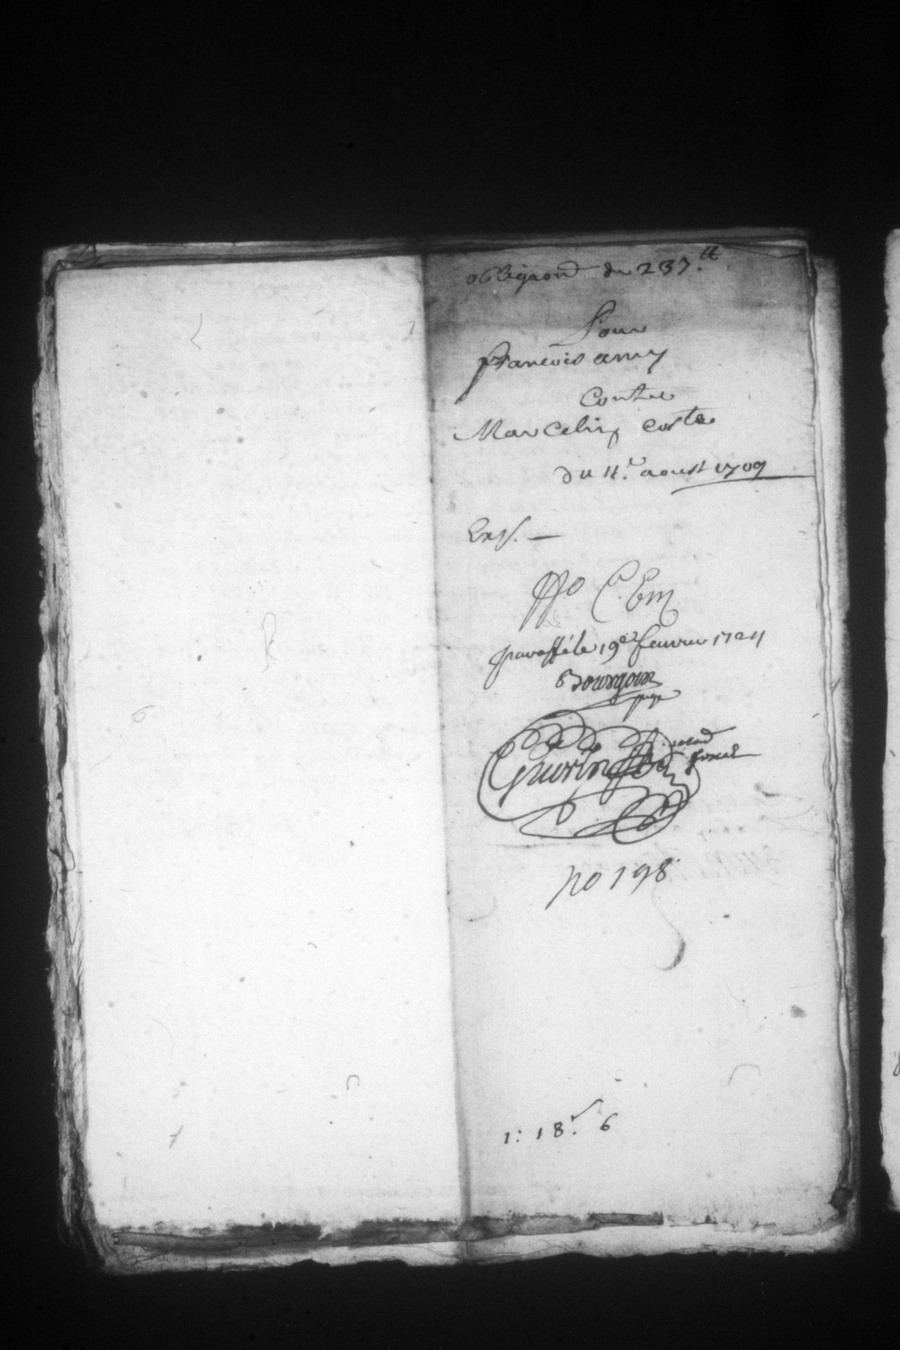 obligaõn de 237.tt
Pour
francois amy
Contre
Marcelin coste
du 11.e aoust 1709
Exp.
ffo C. Em
paraffé le 19e feurier 1724
Bourgoin
juge
Guerin
no 198
1: 18.s 6